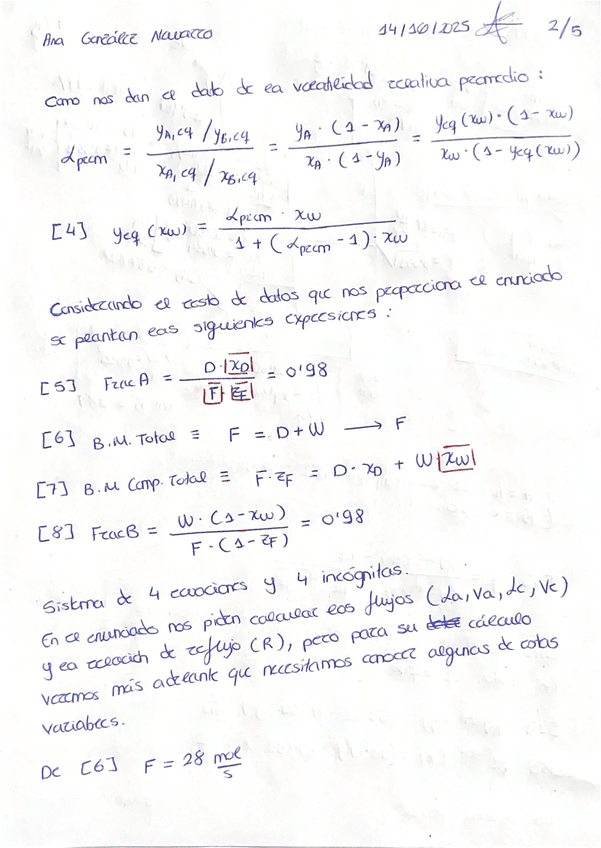 Ana González Navarro 14/10/2025 2/5
Como nos dan el dato de la volatilidad relativa promedio :
α_prom = (y_A,eq / y_B,eq) / (x_A,eq / x_B,eq) = (y_A · (1 - x_A)) / (x_A · (1 - y_A)) = (y_eq (x_W) · (1 - x_W)) / (x_W · (1 - y_eq (x_W)))
[4] y_eq (x_W) = (α_prom · x_W) / (1 + (α_prom - 1) · x_W)
Considerando el resto de datos que nos proporciona el enunciado
se plantean las siguientes expresiones :
[5] Frac A = (D · |x_D|) / (F · z_F) = 0'98
[6] B.M. Total ≡ F = D + W ⟶ F
[7] B.M Comp. Total ≡ F · z_F = D · x_D + W |x_W|
[8] Frac B = (W · (1 - x_W)) / (F · (1 - z_F)) = 0'98
Sistema de 4 ecuaciones y 4 incógnitas.
En el enunciado nos piden calcular los flujos (La, Va, Lc, Vc)
y la relación de reflujo (R), pero para su cálculo
veremos más adelante que necesitamos conocer algunas de estas
variables.
De [6] F = 28 mol/s